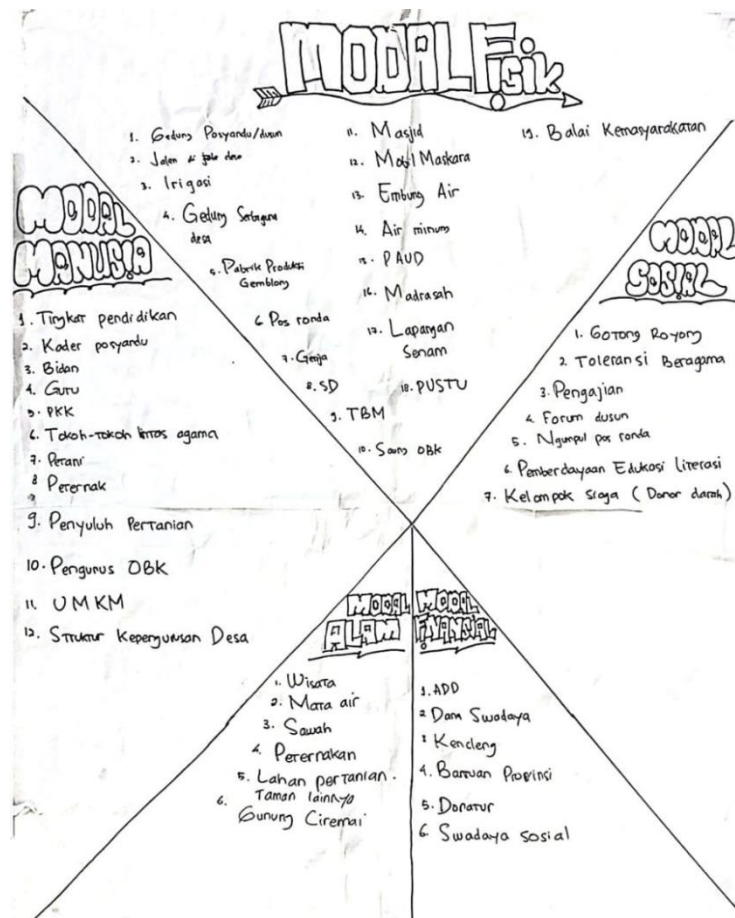 MODAL Fisik
1. Gedung Posyandu/dusun
2. Jalan di
3. Irigasi
4. Gedung Serbaguna
desa
5. Pabrik Produksi
Gemblong
6 Pos ronda
7. Gereja
8. SD
9. TBM
10. Saung OBK
11. Masjid
12. Mobil Maskara
13. Embung Air
14. Air minum
15. PAUD
16. Madrasah
17. Lapangan
Senam
18. PUSTU
19. Balai Kemasyarakatan
MODAL
MANUSIA
1. Tingkat pendidikan
2. Kader posyandu
3. Bidan
4. Guru
5. PKK
6. Tokoh-tokoh lintas agama
7. Petani
8 Peternak
9. Penyuluh Pertanian
10. Pengurus OBK
11. UMKM
12. Struktur Kepengurusan Desa
MODAL
SOSIAL
1. Gotong Royong
2. Toleransi Beragama
3. Pengajian
4 Forum dusun
5. Ngumpul pos ronda
6. Pemberdayaan Edukasi Literasi
7. Kelompok Siaga (Donor darah)
MODAL
ALAM
1. Wisata
2. Mata air
3. Sawah
4. Peternakan
5. Lahan pertanian.
Taman lainnya
6. Gunung Ciremai
MODAL
FINANSIAL
1. ADD
2 Dana Swadaya
3 Kencleng
4. Bantuan Provinsi
5. Donatur
6. Swadaya sosial